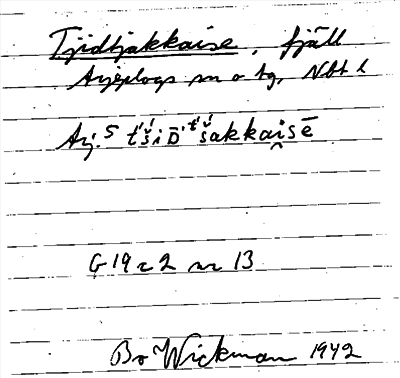 Tjidtjakkaise, fjäll
Arjeplogs sn o tg, Nbt l
Arj. S t́š́iD̄ t́š́akkai̯sē
G 19 c 2 nr 13
Bo Wickman 1942